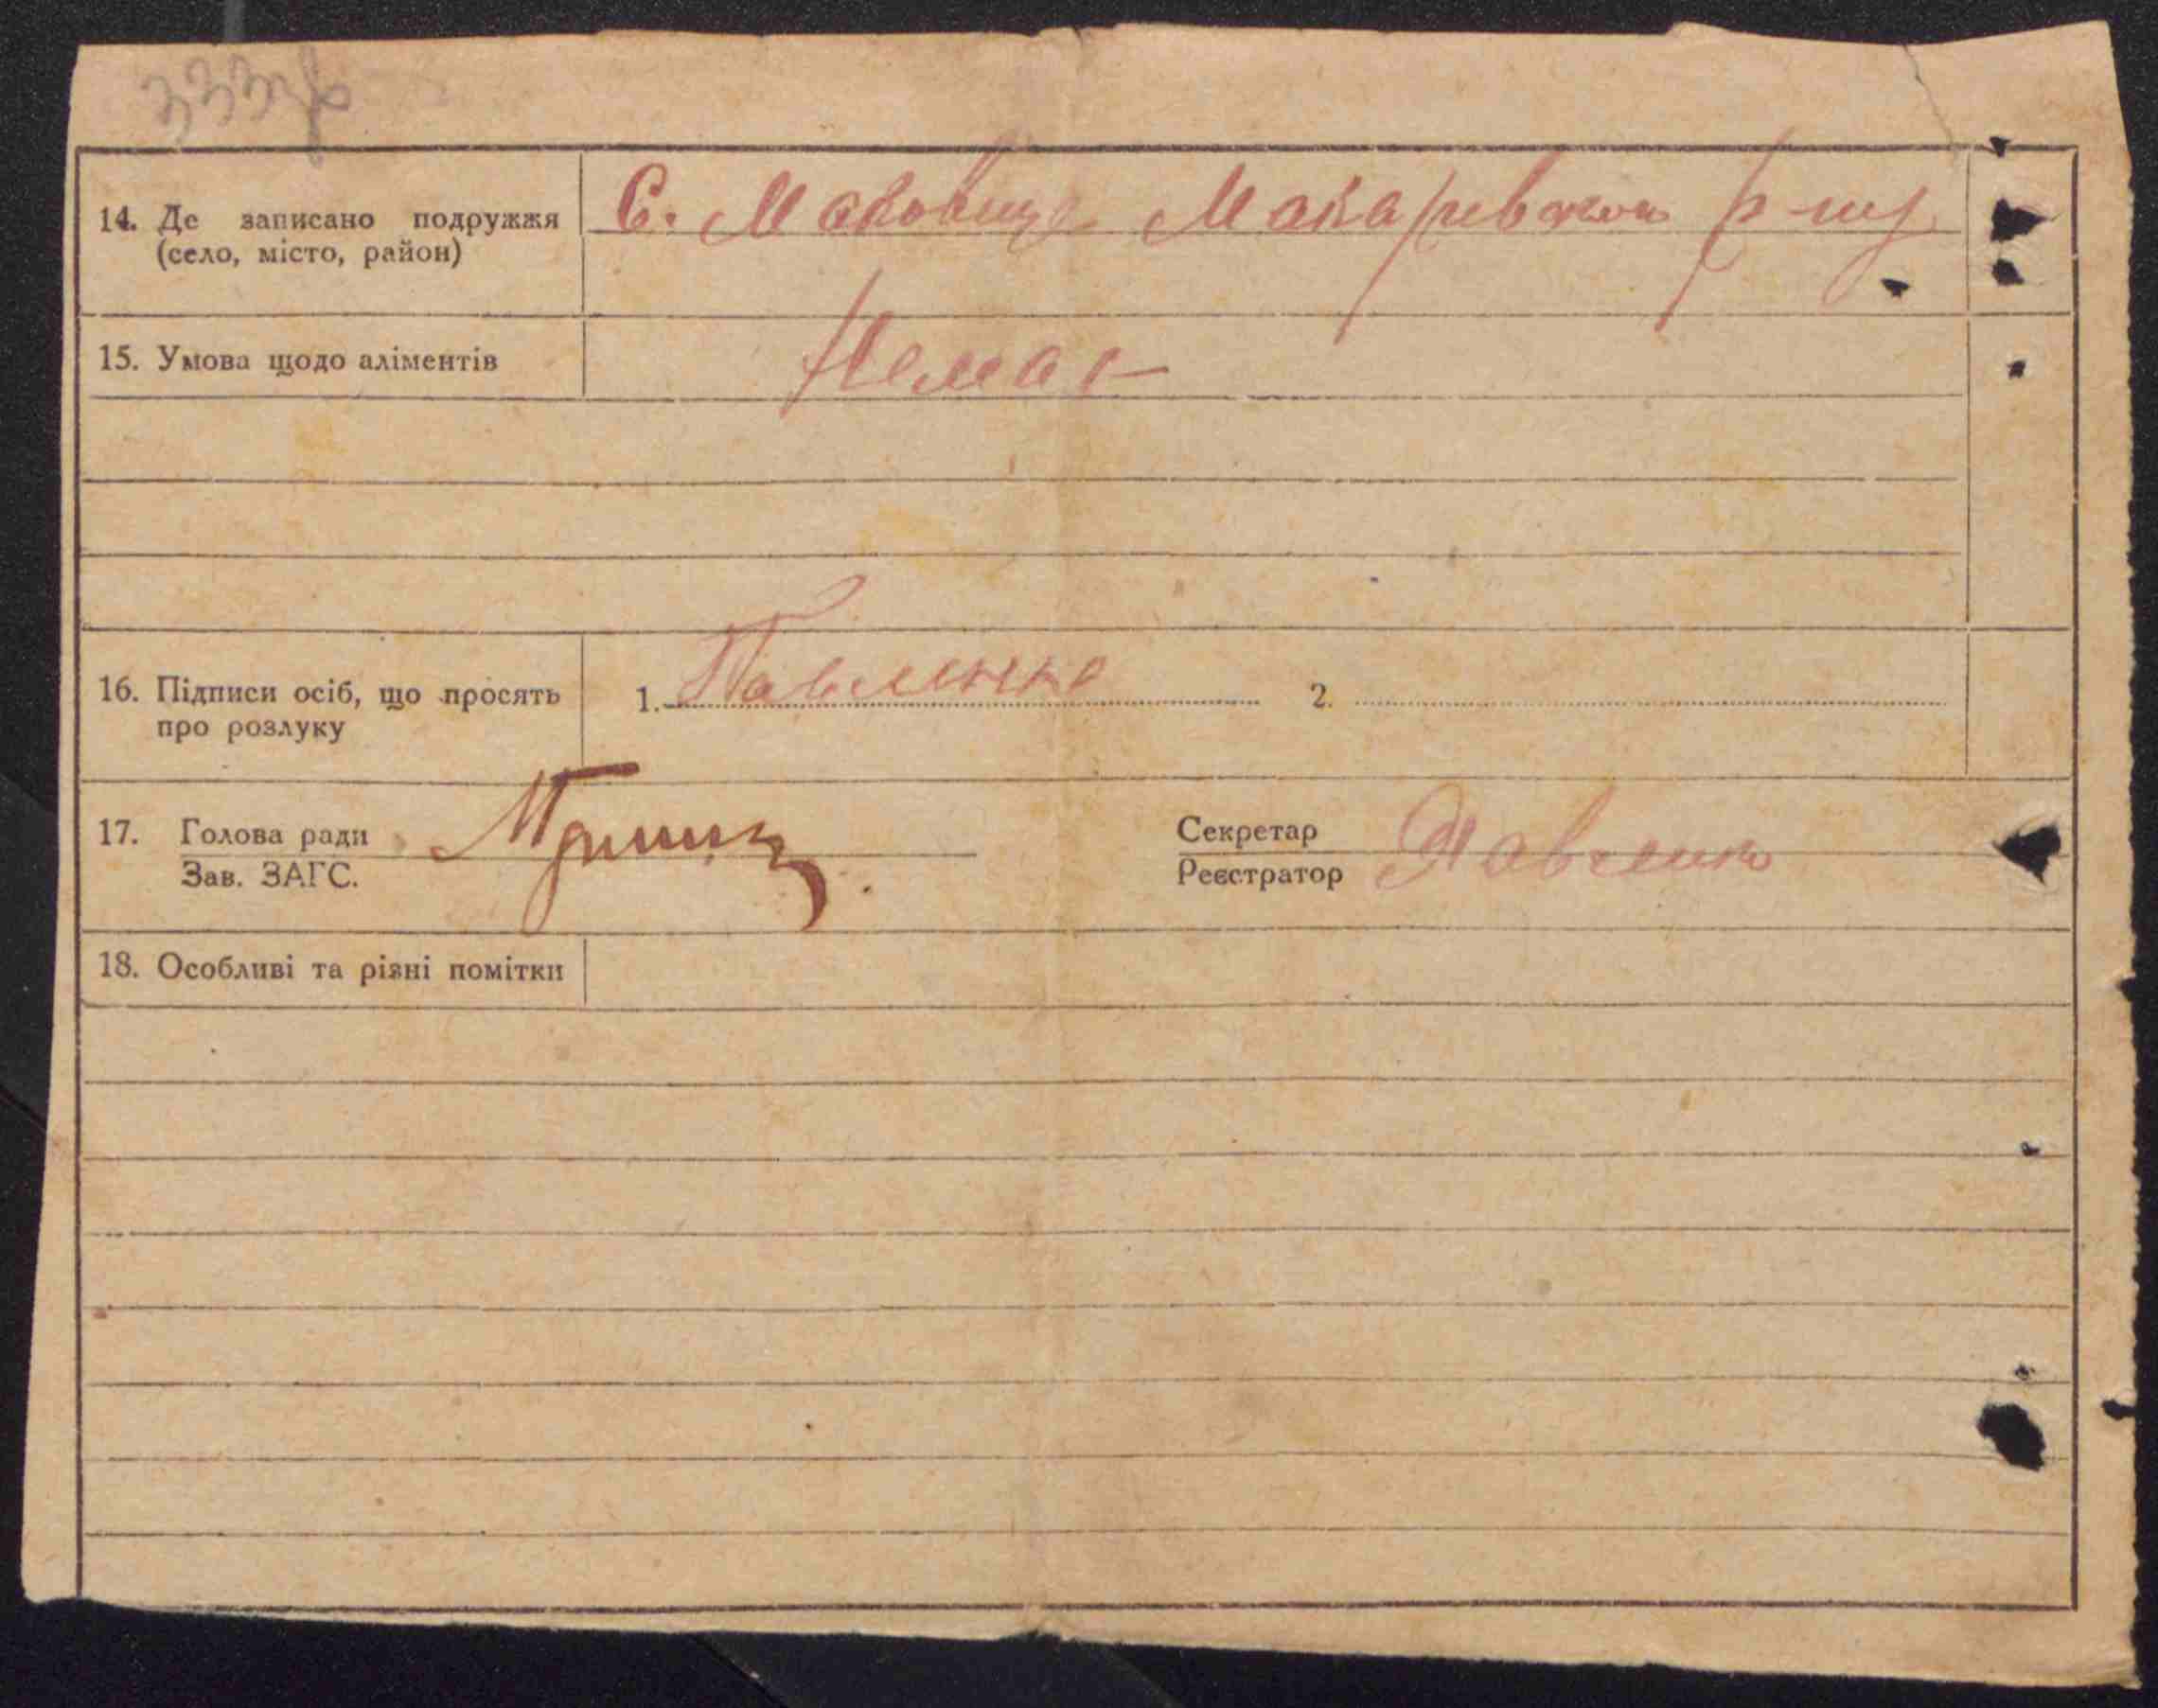 14. Де записано подружжя С. Маковище Макарівськ р-ну
(село, місто, район)
15. Умова щодо аліментів Немає
16. Підписи осіб, що просять 1. Павленко 2.
про розлуку
17. Голова ради Секретар Павленко
Зав. ЗАГС. Реєстратор
18. Особливі та різні помітки